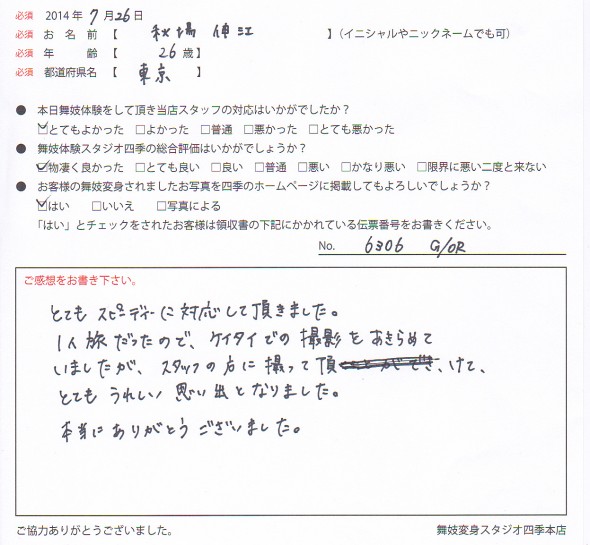 必須 2014年 7月 26日
必須 お 名 前 【 秋場 伸江 】(イニシャルやニックネームでも可)
必須 年 齢 【 26 歳】
必須 都道府県名 【 東京 】
● 本日舞妓体験をして頂き当店スタッフの対応はいかがでしたか？
☑とてもよかった □よかった □普通 □悪かった □とても悪かった
● 舞妓体験スタジオ四季の総合評価はいかがでしょうか？
☑物凄く良かった □とても良い □良い □普通 □悪い □かなり悪い □限界に悪い二度と来ない
● お客様の舞妓変身されましたお写真を四季のホームページに掲載してもよろしいでしょうか？
☑はい □いいえ □写真による
「はい」とチェックをされたお客様は領収書の下記にかかれている伝票番号をお書きください。
No. 6306 G/OR
ご感想をお書き下さい。
とても スピーディーに対応して頂きました。
1人旅だったので、ケイタイでの撮影をあきらめて
いましたが、スタッフの方に撮って頂けて、
とても うれしい 思い出となりました。
本当にありがとうございました。
ご協力ありがとうございました。
舞妓変身スタジオ四季本店